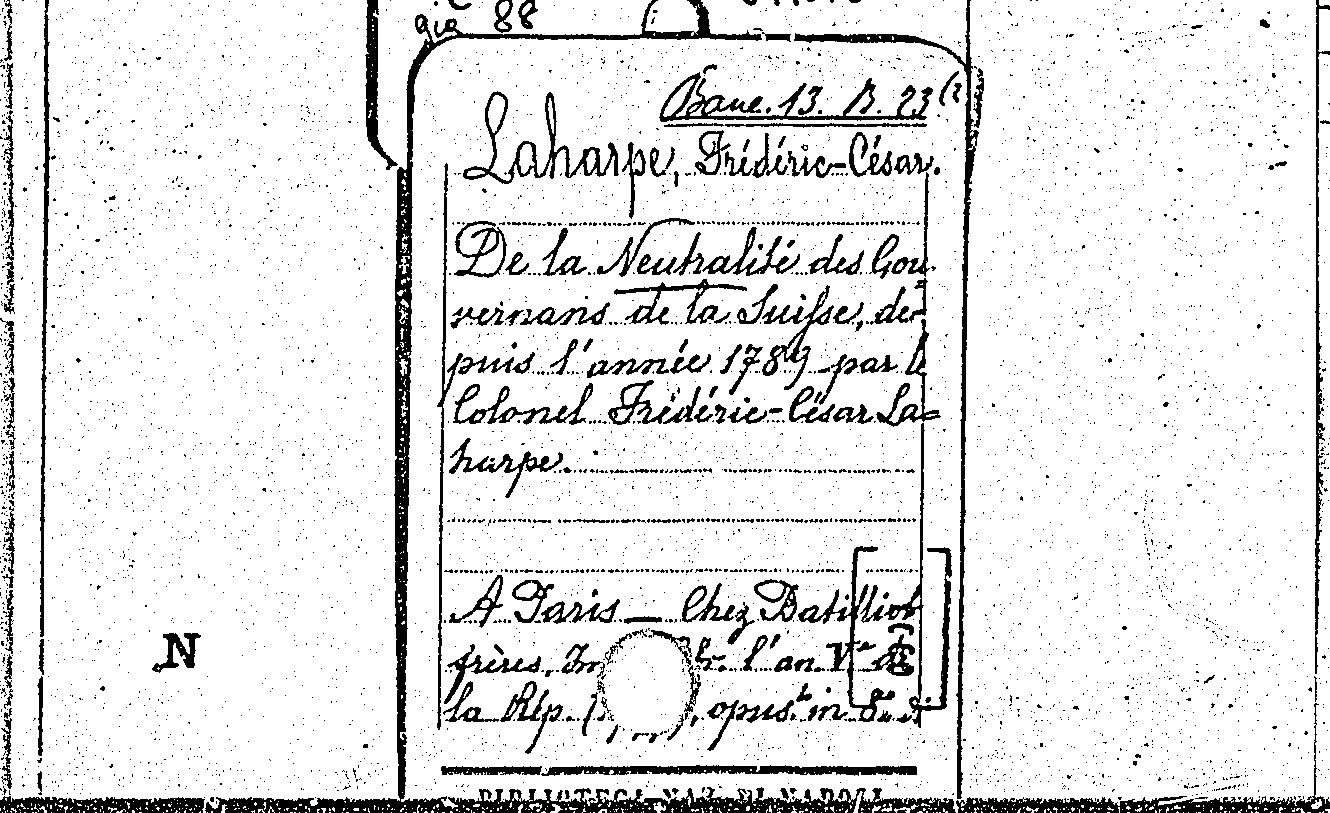 gia 88
Banc. 13. B. 23 (2
Laharpe, Frédéric-César.
De la Neutralité des Gou-
vernans de la Suisse, de-
puis l'année 1789 par le
Colonel Frédéric-César La=
harpe.
A Paris — Chez Batilliot
frères, Im br. l'an Ve de
la Rép. , opusc. in 8.
N
BIBLIOTECA NAZ. DI NAPOLI